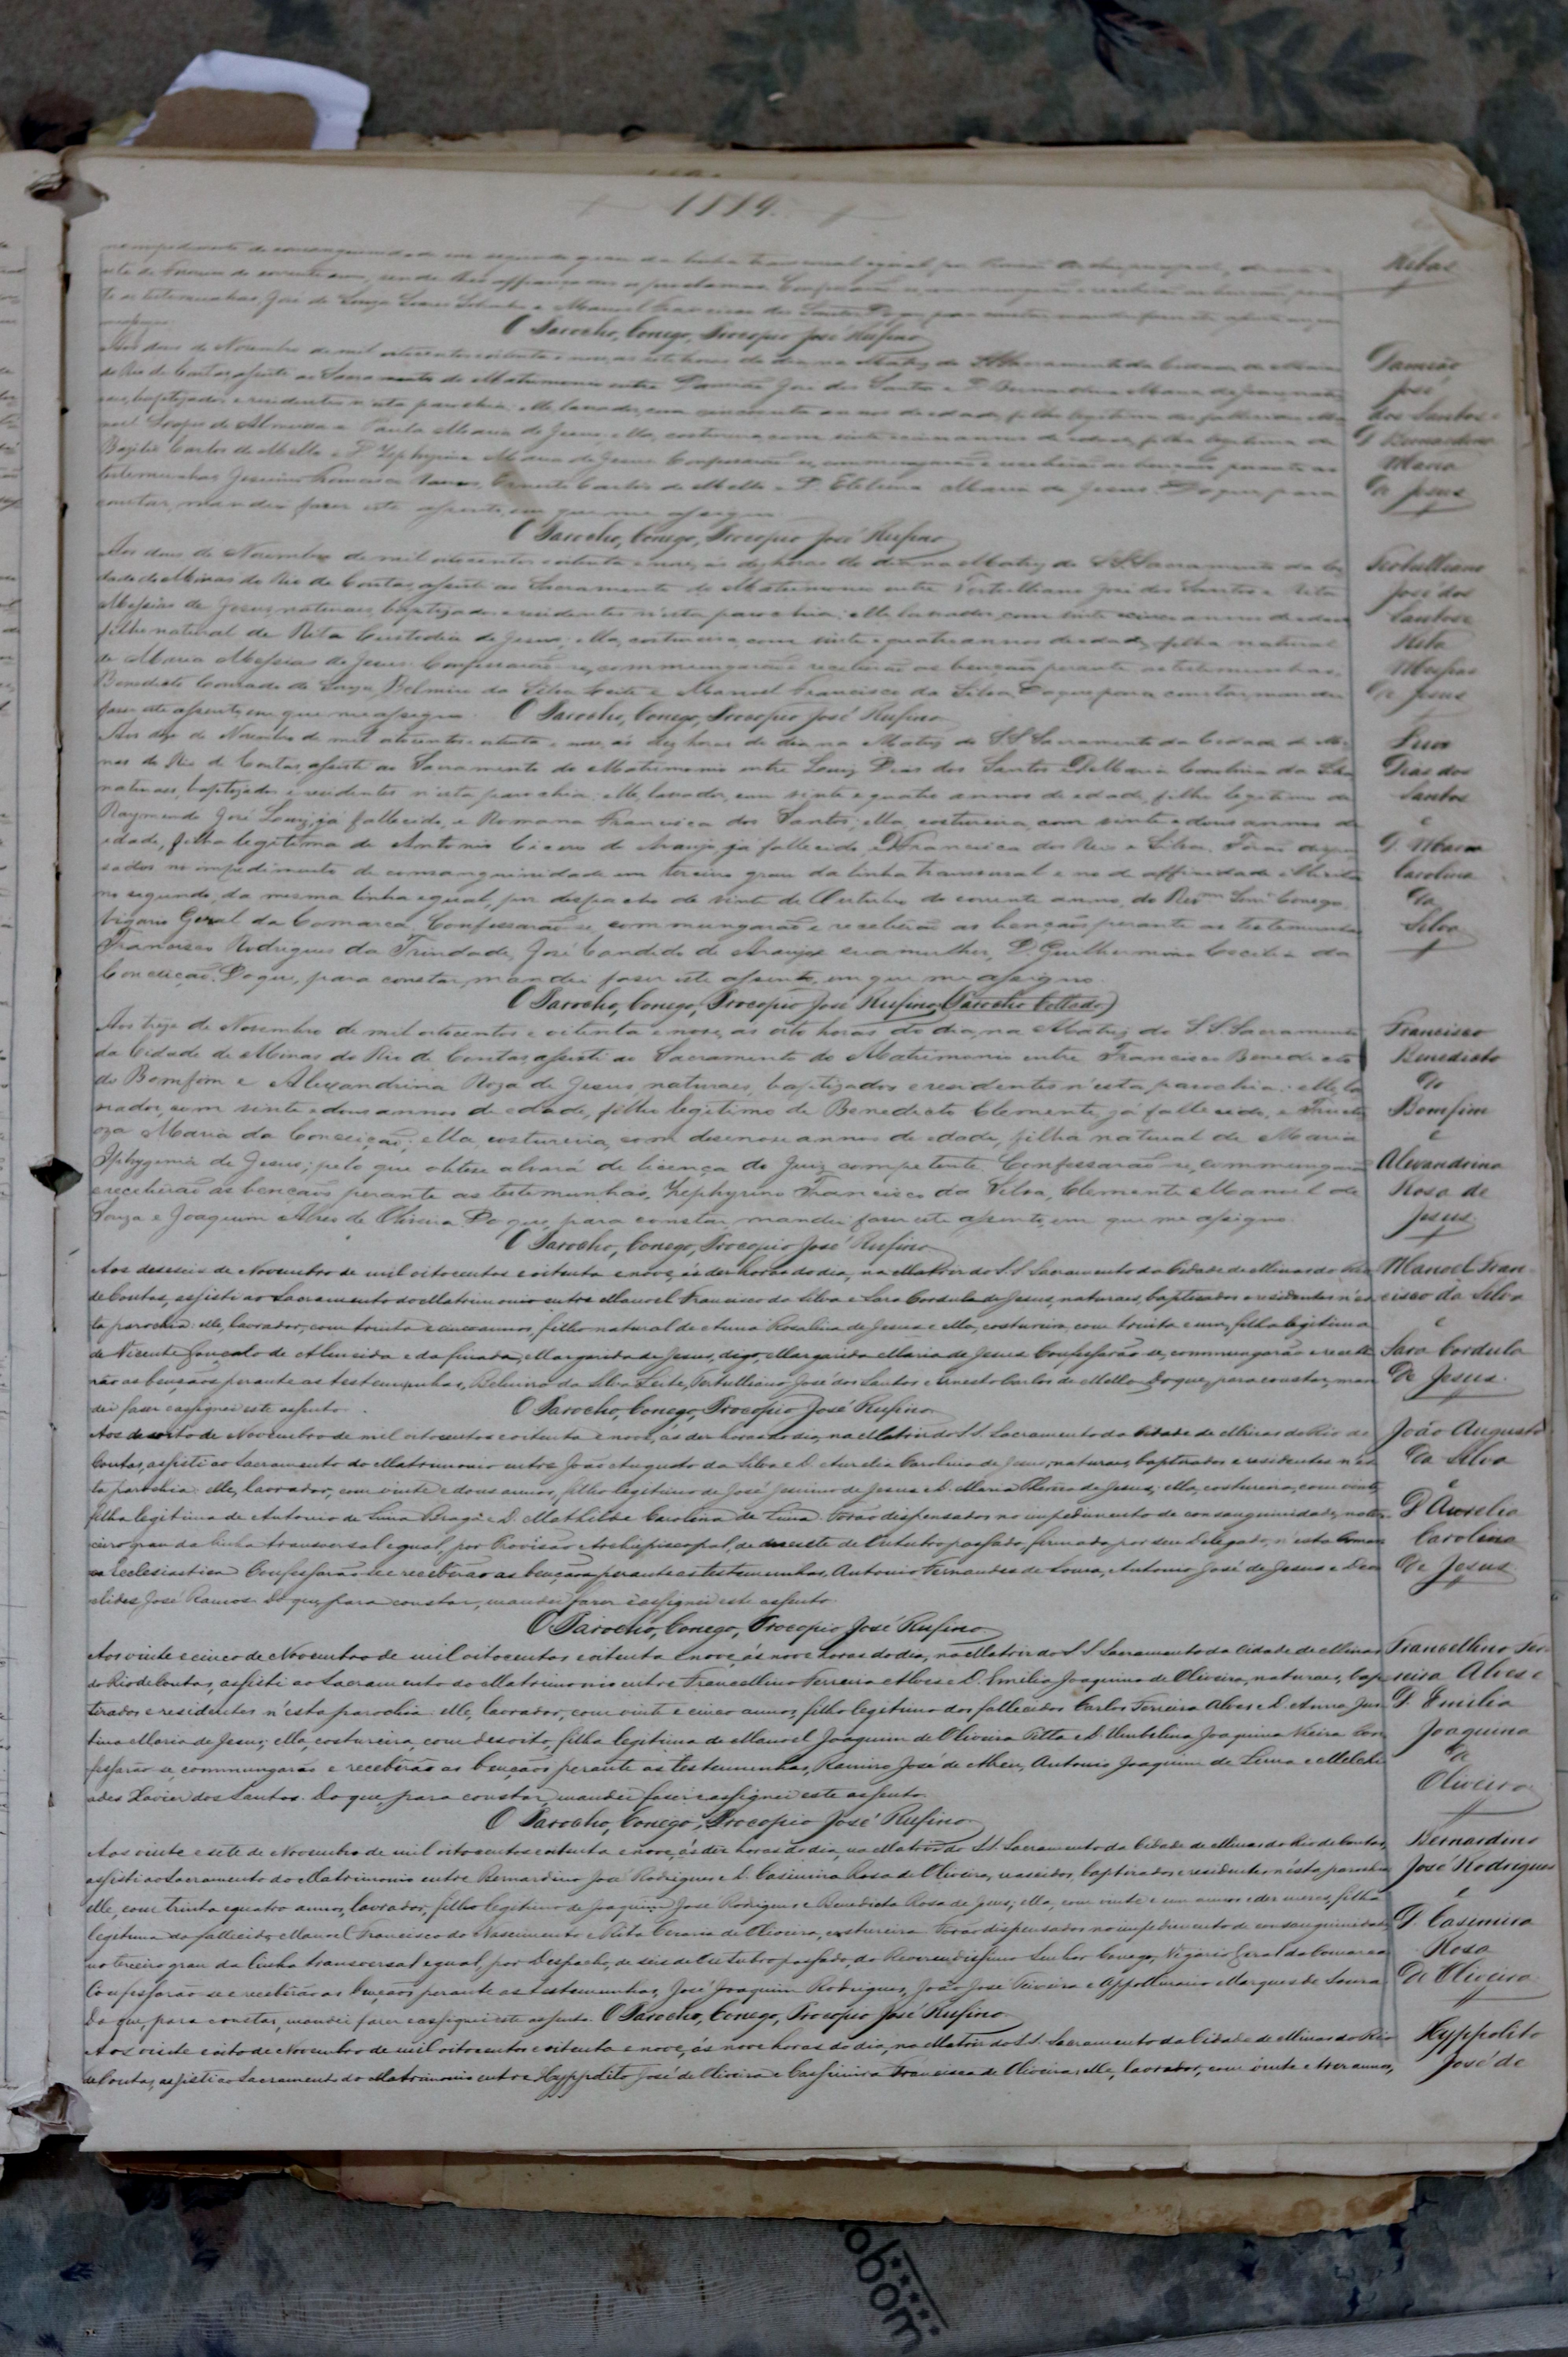 1889.
Ribas
te as testemunhas, José de Souza
O Parocho, Conego, Procopio José Rufino
Aos dous de Novembro de mil oitocentos e oitenta e nove, as sete horas do dia, na Matriz do S S Sacramento da Cidade de Minas
do Rio de Contas assisti ao Sacramento do Matrimonio entre Damião José dos Santos e D. Bernardina Maria de Jesus, natu
raes, baptizados e residentes n'esta parochia: elle, lavrador, com cincoenta annos de edade, filho legitimo dos fallecidos Ma
noel Lopes de Almeida e Paula Maria de Jesus; ella, costureira, com vinte e cinco annos de edade, filha legitima de
Basilio Carlos de Mello e D. Zephyrina Maria de Jesus. Confessarão-se, commungarão e receberão as benções perante as
testemunhas, Francisco Ramos, Ernesto Carlos de Mello e D. Etelvina Maria de Jesus. Do que, para
constar, mandei fazer este assento, em que me assigno
Damião
José
dos Santos e
D. Bernardina
Maria
de Jesus
O Parocho, Conego, Procopio José Rufino
Aos dous de Novembro de mil oitocentos e oitenta e nove, ás dez horas do dia na Matriz do S S Sacramento da Ci
dade de Minas do Rio de Contas, assisti ao Sacramento do Matrimonio entre Tertulliano José dos Santos e Rita
Messias de Jesus, naturaes, baptizados e residentes n'esta parochia: elle lavrador, com vinte e cinco annos de edade
filho natural de Rita Custodia de Jesus; ella, costureira, com vinte e quatro annos de edade, filha natural
de Maria Messias de Jesus. Confessarão-se, commungarão e receberão as benções perante as testemunhas,
Benedicto Conrado de Souza, Belmiro da Silva Leite e Manoel Francisco da Silva. Do que para constar, mandei
fazer este assento, em que me assigno. O Parocho, Conego, Procopio José Rufino
Tertulliano
José dos
Santos e
Rita
Messias
de Jesus
Aos doze de Novembro de mil oitocentos e oitenta e nove, ás dez horas do dia, na Matriz do S S Sacramento da Cidade de Mi
nas do Rio de Contas, assisti ao Sacramento do Matrimonio entre Luiz Dias dos Santos e D. Maria Carolina da Silva
naturaes, baptizados e residentes n'esta parochia: elle, lavrador, com vinte e quatro annos de edade, filho legitimo de
Raymundo José Luiz, já fallecido, e Romana Francisca dos Santos; ella, costureira, com vinte e dous annos de
edade, filha legitima de Antonio Cicero de Araujo, já fallecido, e D. Francisca dos Reis e Silva. Forão dispen
sados no impedimento de consanguinidade em terceiro grau da linha transversal e no de affinidade illicita
no segundo, da mesma linha egual, por despacho de vinte de Outubro do corrente anno, do Revmo Senr Conego
Vigario Geral da Comarca. Confessarão-se, commungarão e receberão as benções perante as testemunhas
Francisco Rodrigues da Trindade, José Candido de Araujo e sua mulher, D. Guilhermina Cecilia da
Conceição. Do que, para constar, mandei fazer este assento, em que me assigno.
Luiz
Dias dos
Santos
e
D. Maria
Carolina
da
Silva
O Parocho, Conego, Procopio José Rufino (Parocho Collado)
Aos treze de Novembro de mil oitocentos e oitenta e nove, as oito horas do dia, na Matriz do S. S. Sacramento
da Cidade de Minas do Rio de Contas, assisti ao Sacramento do Matrimonio entre Francisco Benedicto
do Bomfim e Alexandrina Roza de Jesus, naturaes, baptizados e residentes n'esta parochia: elle, la
vrador, com vinte e dous annos de edade, filho legitimo de Benedicto Clemente, já fallecido, e Fructu
oza Maria da Conceição; ella costureira, com desenove annos de edade, filha natural de Maria
Iphygenia de Jesus; pelo que obteve alvará de licença do Juiz competente. Confessarão-se, commungarão
e receberão as benções perante as testemunhas, Zephyrino Francisco da Silva, Clemente Manoel de
Souza e Joaquim Alves de Oliveira. Do que, para constar, mandei fazer este assento, em que me assigno.
Francisco
Benedicto
do
Bomfim
e
Alexandrina
Rosa de
Jesus
O Parocho, Conego, Procopio José Rufino
Aos deseseis de Novembro de mil oitocentos e oitenta e nove, ás dez horas do dia, na Matriz do S. S Sacramento da Cidade de Minas do Rio
de Contas, assisti ao Sacramento do Matrimonio entre Manoel Francisco da Silva e Sara Cordula de Jesus, naturaes, baptizados e residentes n'es
ta parochia: elle, lavrador, com trinta e cinco annos, filho natural de Anna Rosalina de Jesus e ella, costureira, com trinta e um, filha legitima
de Vicente Gonçalo de Almeida e da finada, Margarida de Jesus, digo, Margarida Maria de Jesus. Confessarão-se, commungarão e recebe
rão as benções perante as testemunhas, Belmiro da Silva Leite, Tertulliano José dos Santos e Ernesto Carlos de Mello. Do que, para constar, man
dei fazer e assignei este assento. O Parocho, Conego, Procopio José Rufino
Manoel Fran
cisco da Silva
e
Sara Cordula
de Jesus.
Aos desoito de Novembro de mil oitocentos e oitenta e nove, ás dez horas do dia, na Matriz do S. S. Sacramento da Cidade de Minas do Rio de
Contas, assisti ao Sacramento do Matrimonio entre João Augusto da Silva e D. Aurelia Carolina de Jesus, naturaes, baptizados e residentes n'es
ta parochia: elle, lavrador, com vinte e dous annos, filho legitimo de José Jesuino de Jesus e D. Maria Theresa de Jesus; ella, costureira, com vinte,
filha legitima de Antonio de Lima Braga e D. Mathilde Carolina de Lima. Forão dispensados no impedimento de consanguinidade, no ter
ceiro grau da linha transversal egual, por Provisão Archiepiscopal, de de Outubro passado, firmada por seu Delegado, n'esta Comar
ca Ecclesiastica. Confessarão-se e receberão as benções perante as testemunhas, Antonio Fernandes de Souza, Antonio José de Jesus e Deo
clides José Ramos. Do que, para constar, mandei fazer e assignei este assento.
João Augusto
da Silva
e
D. Aurelia
Carolina
de Jesus
O Parocho, Conego, Procopio José Rufino
Aos vinte e cinco de Novembro de mil oitocentos e oitenta e nove, ás nove horas do dia, na Matriz do S S Sacramento da Cidade de Minas
do Rio de Contas, assisti ao Sacramento do Matrimonio entre Francellino Ferreira Alves e D. Emilia Joaquina de Oliveira, naturaes, bap
tizados e residentes n'esta parochia: elle, lavrador, com vinte e cinco annos, filho legitimo dos fallecidos Carlos Ferreira Alves e D. Anna Jus
tina Maria de Jesus; ella, costureira, com desoito, filha legitima de Manoel Joaquim de Oliveira Pitta e D. Umbelina Joaquina Vieira. Con
fessarão-se, commungarão e receberão as benções perante as testemunhas, Ramiro José de Abreu, Antonio Joaquim de Lima e Melchi
ades Xavier dos Santos. Do que, para constar, mandei fazer e assignei este assento.
Francellino Fer
reira Alves e
D. Emilia
Joaquina
de
Oliveira
O Parocho, Conego, Procopio José Rufino
Aos vinte e sete de Novembro de mil oitocentos e oitenta e nove, ás dez horas do dia, na Matriz do S. S. Sacramento da Cidade de Minas do Rio de Contas,
assisti ao Sacramento do Matrimonio entre Bernardino José Rodrigues e D. Casimira Rosa de Oliveira, nascidos, baptizados e residentes n'esta parochia
elle, com trinta e quatro annos, lavrador, filho legitimo de Joaquim José Rodrigues e Benedicta Rosa de Jesus; ella, com vinte e um annos e dez meses, filha
legitima do fallecido Manoel Francisco do Nascimento e Rita de Oliveira, costureira. Forão dispensados no impedimento de consanguinidade
no terceiro grau da linha transversal egual, por Despacho, de seis de Outubro passado, do Reverendissimo Senhor Conego, Vigario Geral da Comarca
Confessarão-se e receberão as benções perante as testemunhas, José Joaquim Rodrigues, João José Teixeira e Appollinario Marques de Souza
Do que, para constar, mandei fazer e assignei este assento. O Parocho, Conego, Procopio José Rufino
Bernardino
José Rodrigues
e
D. Casimira
Rosa
de Oliveira.
Aos vinte e oito de Novembro de mil oitocentos e oitenta e nove, ás nove horas do dia, na Matriz do S. S. Sacramento da Cidade de Minas do Rio
de Contas, assisti ao Sacramento do Matrimonio entre Hyppolito José de Oliveira e Casimira Francisca de Oliveira; elle, lavrador, com vinte e tres annos,
Hyppolito
José de